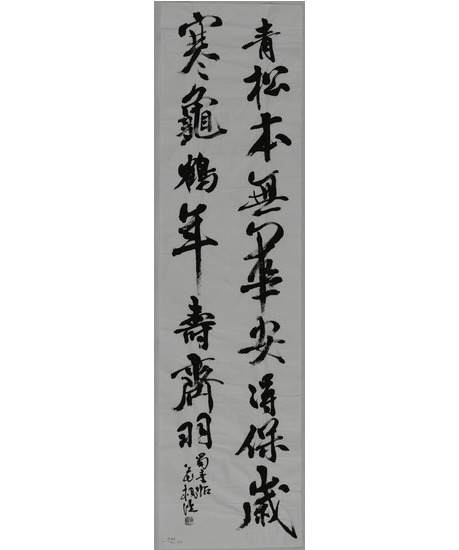 青松本無華安得保歲
寒龜鶴年壽齊羽
蜀素帖